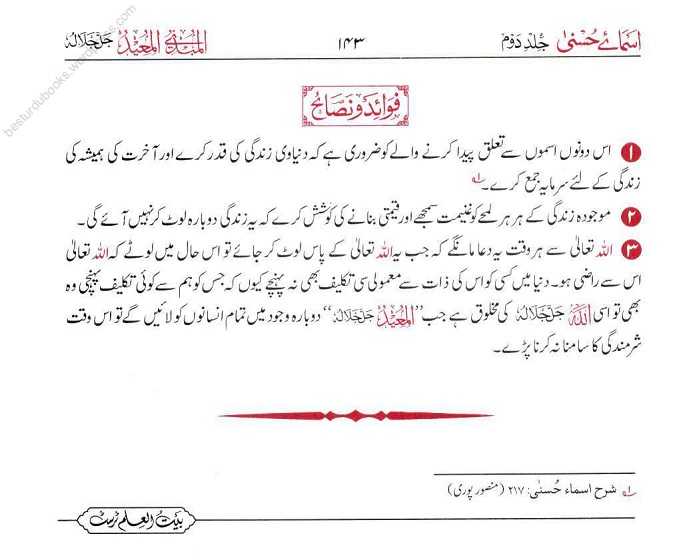 اسمائے حُسنیٰ جلد دوم ۱۴۳ المبدئ المعید جَلَّ جَلَالُہٗ
فوائد و نصائح
❶ اس دونوں اسموں سے تعلق پیدا کرنے والے کو ضروری ہے کہ دنیاوی زندگی کی قدر کرے اور آخرت کی ہمیشہ کی
زندگی کے لئے سرمایہ جمع کرے۔ ؎۱
❷ موجودہ زندگی کے ہر ہر لمحے کو غنیمت سمجھے اور قیمتی بنانے کی کوشش کرے کہ یہ زندگی دوبارہ لوٹ کر نہیں آئے گی۔
❸ اللہ تعالیٰ سے ہر وقت یہ دعا مانگے کہ جب یہ اللہ تعالیٰ کے پاس لوٹ کر جائے تو اس حال میں لوٹے کہ اللہ تعالیٰ
اس سے راضی ہو۔ دنیا میں کسی کو اس کی ذات سے معمولی سی تکلیف بھی نہ پہنچے کیوں کہ جس کو ہم سے کوئی تکلیف پہنچی وہ
بھی تو اسی اللہ جَلَّ جَلَالُہٗ کی مخلوق ہے جب "المعید جَلَّ جَلَالُہٗ" دوبارہ وجود میں تمام انسانوں کو لائیں گے تو اس وقت
شرمندگی کا سامنا نہ کرنا پڑے۔
؎۱ شرح اسماء حُسنٰی: ۲۱۷ (منصور پوری)
بیت العلم ٹرسٹ
besturdubooks.wordpress.com